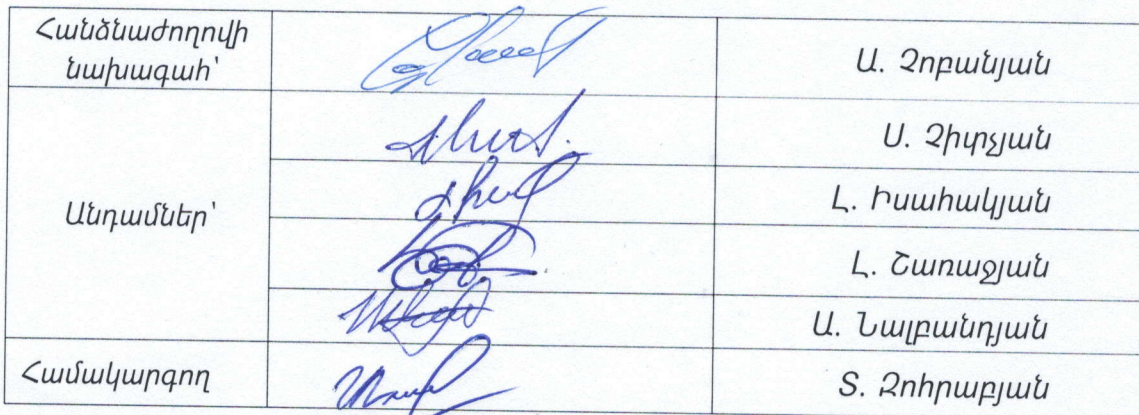 Հանձնաժողովի
նախագահ՝
Ա. Չոբանյան
Անդամներ՝
Ս. Չիտչյան
Լ. Իսահակյան
Լ. Շառաջյան
Ա. Նալբանդյան
Համակարգող
Տ. Զոհրաբյան